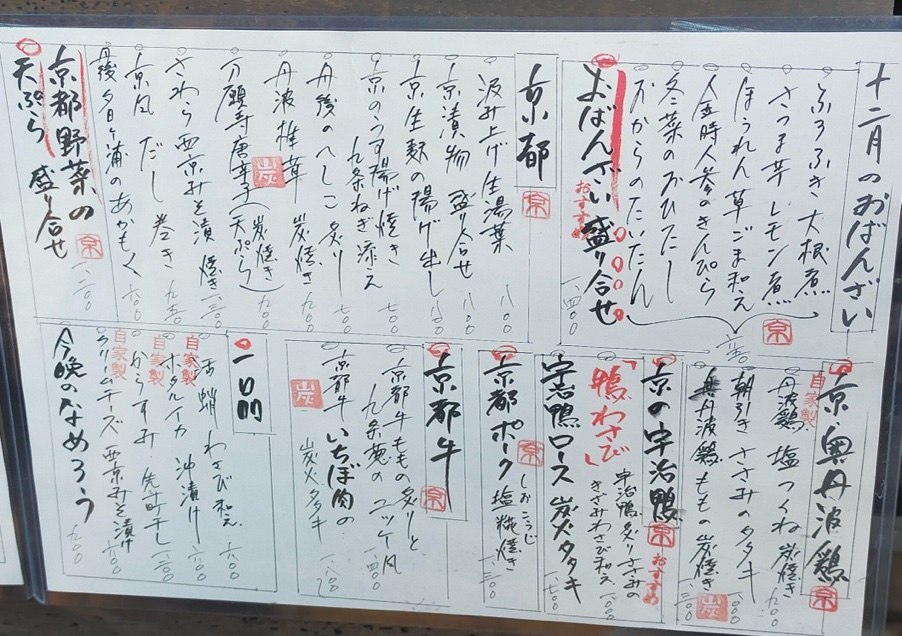 十二月のおばんざい
ふろふき大根煮
さつま芋レモン煮
ほうれん草ごま和え
金時人参のきんぴら
冬菜のおひたし
おからのたいたん
京
おばんざい盛り合せ
おすすめ
一四〇〇
京都
京
汲み上げ生湯葉 八〇〇
京漬物 盛り合せ 八〇〇
京生麩の揚げ出し
京のうす揚げ焼き
九条ねぎ添え 七〇〇
丹後のへしこ炙り 七〇〇
丹波椎茸 炭焼き 九〇〇
炭
万願寺唐辛子(天ぷら・炭焼き) 九〇〇
さわら西京みそ漬 焼き
京風 だし巻き 九五〇
丹後夕日ヶ浦のあかもく 六〇〇
京都野菜の
天ぷら 盛り合せ
京
一二〇〇
京・奥丹波鶏
京
自家製
丹波鶏 塩つくね 炭焼き 九〇〇
朝引き ささみのタタキ 一〇〇〇
奥丹波鶏ももの炭焼き 一三〇〇
炭
京の宇治鴨
京
おすすめ
「鴨わさび」
宇治鴨炙りささみの
きざみわさび和え 一〇〇〇
宇治鴨ロース 炭火タタキ 一七〇〇
京都ポーク 塩糀焼き
しおこうじ
京
一三〇〇
京都牛
京
京都牛ももの炙りと
九条葱のユッケ風 一四〇〇
京都牛 いちぼ肉の
炭火タタキ
炭
一品
活蛸 わさび和え 六〇〇
自家製
ホタルイカ 沖漬け 六〇〇
自家製
からすみ
自家製
クリームチーズ 西京みそ漬け 六〇〇
今晩のなめろう 九〇〇